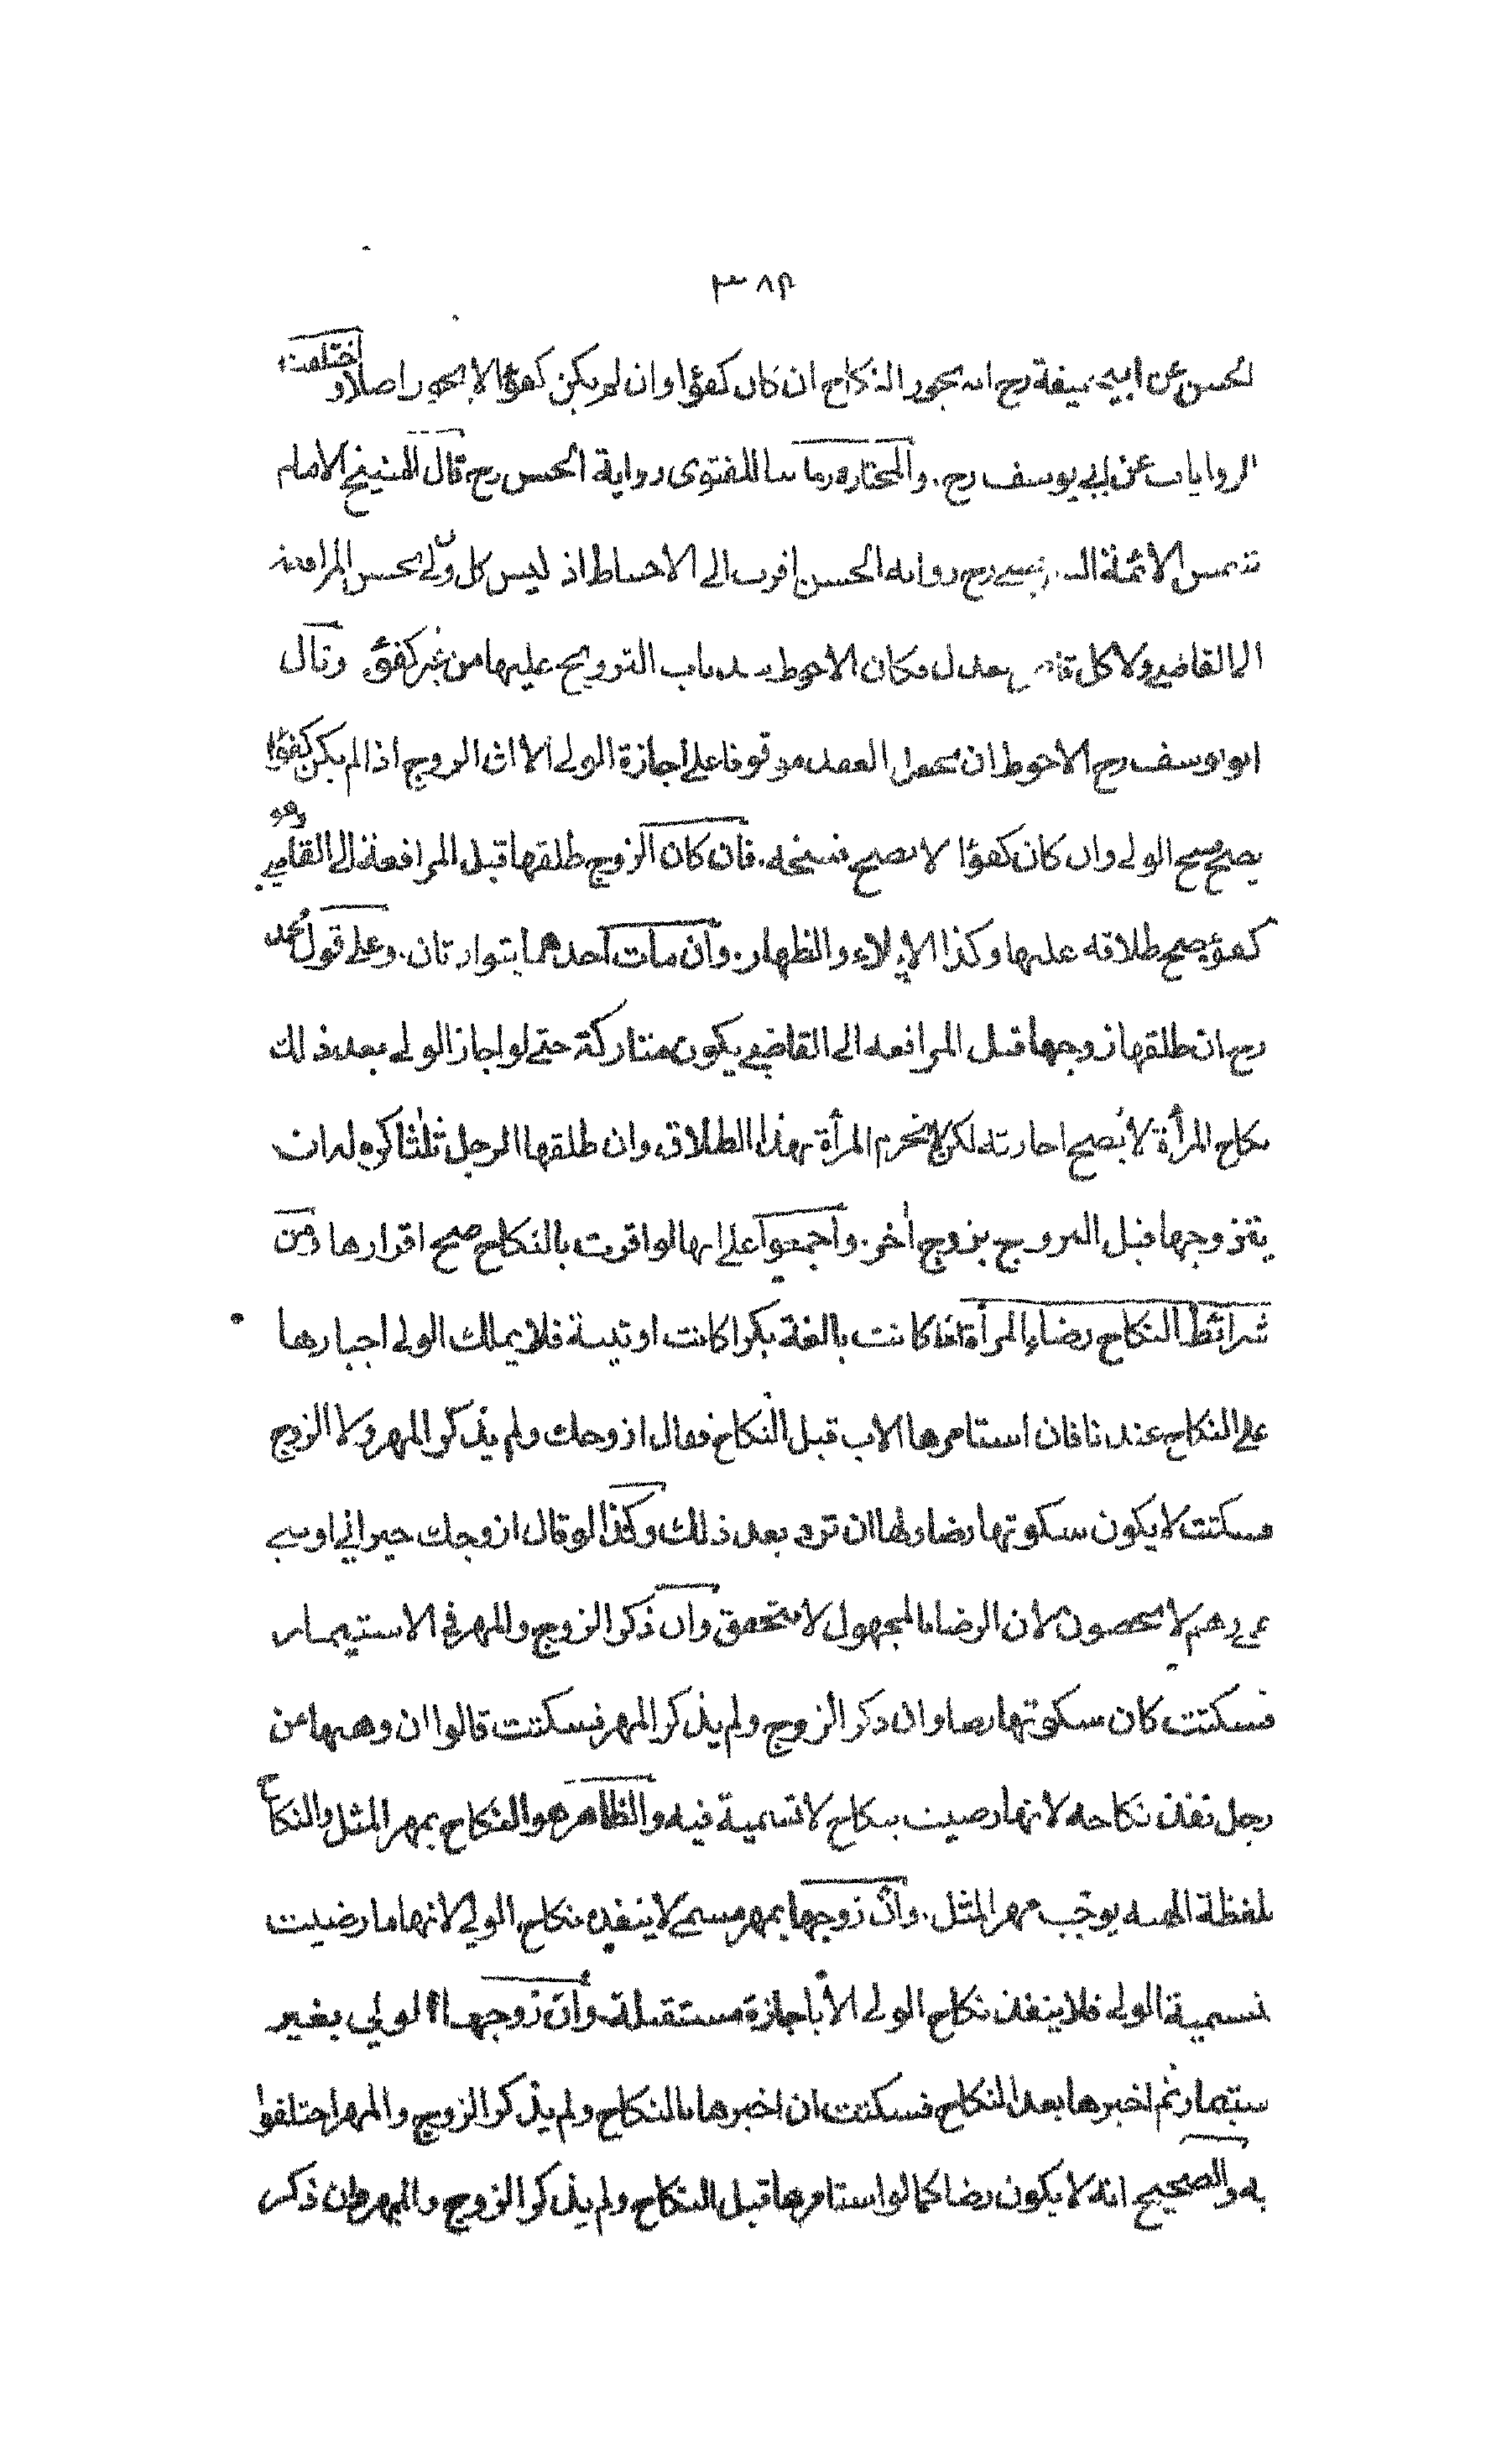 ٣٨٢
الحسن عن ابي حنيفة رح انه يجوز النكاح ان كان كفؤا وان لم يكن كفؤا لا يجوز اصلا و اختلفت
الروايات عن ابي يوسف رح. والمختار في زماننا للفتوى رواية الحسن رح قال الشيخ الامام
شمس الائمة السرخسي رح رواية الحسن اقرب الى الاحتياط اذ ليس كل ولي يحسن المرافعة
الى القاضي ولا كل قاض يعدل فكان الاحوط سد باب التزويج عليها من غير كفؤ وقال
ابو يوسف رح الاحوط ان يجعل العقد موقوفا على اجازة الولي الا ان الزوج اذا لم يكن كفؤا
يصح فسخ الولي وان كان كفؤا لا يصح فسخه. فان كان الزوج طلقها قبل المرافعة الى القاضي وهو
كفؤ صح طلاقه عليها وكذا الايلاء والظهار. وان مات احدهما يتوارثان. وعلى قول محمد
رح ان طلقها زوجها قبل المرافعة الى القاضي يكون متاركة حتى لو اجاز الولي بعد ذلك
نكاح المرأة لا يصح اجازته لكن لا تحرم المرأة بهذا الطلاق وان طلقها الرجل ثلثا كره له ان
يتزوجها قبل التزوج بزوج اخر. واجمعوا على انها لو اقرت بالنكاح صح اقرارها ومن
شرائط النكاح رضاء المرأة اذا كانت بالغة بكرا كانت او ثيبة فلا يملك الولي اجبارها
على النكاح عندنا فان استامرها الاب قبل النكاح فقال ازوجك ولم يذكر المهر ولا الزوج
فسكتت لا يكون سكوتها رضا ولها ان ترد بعد ذلك وكذا لو قال ازوجك جيراني او بني
عمي وهم لا يحصون لان الرضا بالمجهول لا يتحقق وان ذكر الزوج والمهر في الاستيمار
فسكتت كان سكوتها رضا وان ذكر الزوج ولم يذكر المهر فسكتت قالوا ان وهبها من
رجل نفذ نكاحه لانها رضيت بنكاح لا تسمية فيه والظاهر هو النكاح بمهر المثل والنكاح
بلفظة الهبة يوجب مهر المثل. وان زوجها بمهر مسمى لا ينفذ نكاح الولي لانها ما رضيت
بتسمية الولي فلا ينفذ نكاح الولي الا باجازة مستقبلة وان زوجها الولي بغير
استيمار ثم اخبرها بعد النكاح فسكتت ان اخبرها بالنكاح ولم يذكر الزوج والمهر اختلفوا
به والصحيح انه لا يكون رضا كما لو استامرها قبل النكاح ولم يذكر الزوج والمهر وان ذكر